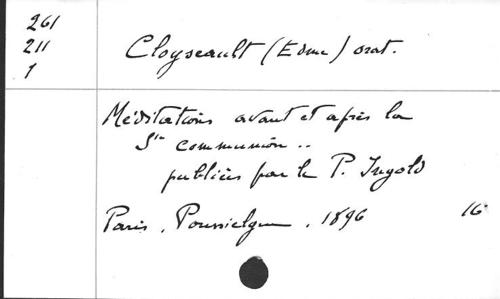 261
211
1
Cloyseault (Edme) orat.
Méditations avant et après la
Ste communion ..
publiées par le P. Ingold
Paris, Poussielgue, 1896 16